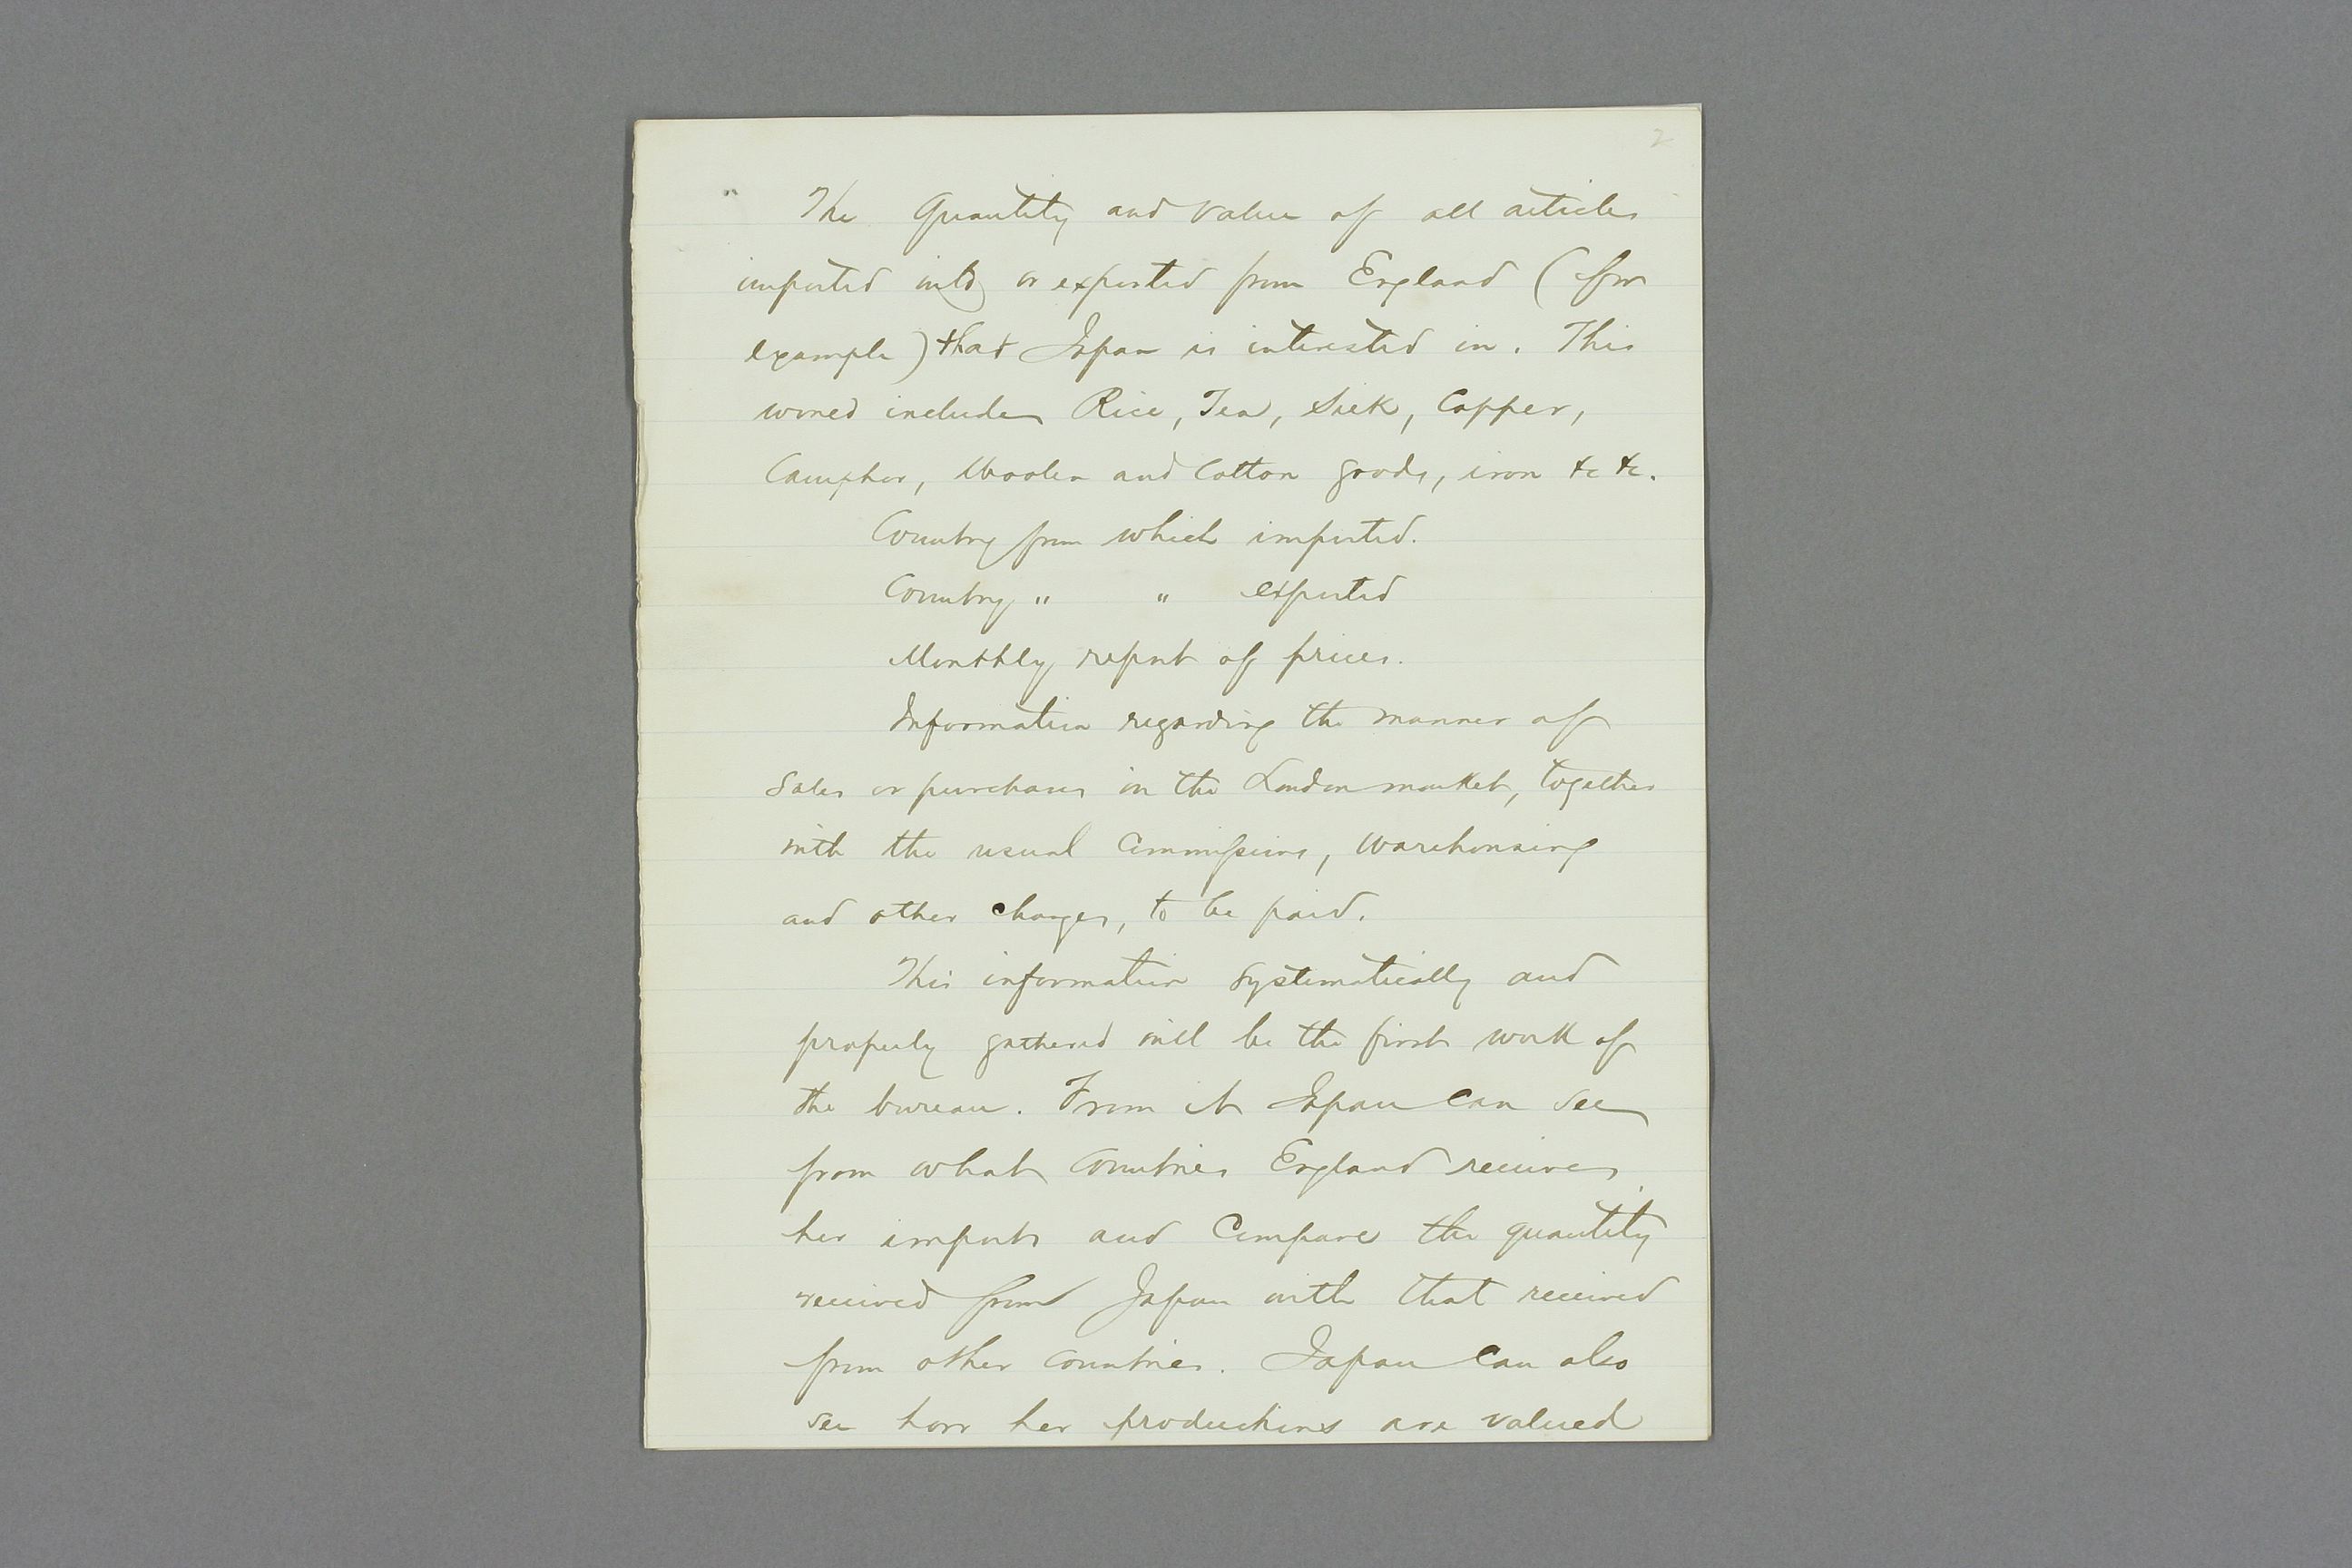 2
The Quantity and value of all articles
imported into or exported from England (for
example) that Japan is interested in. This
would include Rice, Tea, Silk, Copper,
Camphor, Woolen and Cotton goods, iron &c &c.
Country from which imported.
Country " " exported
Monthly report of prices.
Information regarding the manner of
sales or purchases in the London market, together
with the usual Commissions, warehousing
and other charges, to be paid.
This information systematically and
properly gathered will be the first work of
the bureau. From it Japan can see
from what countries England receives
her imports and Compare the quantity
received from Japan with that received
from other countries. Japan can also
see how her productions are valued